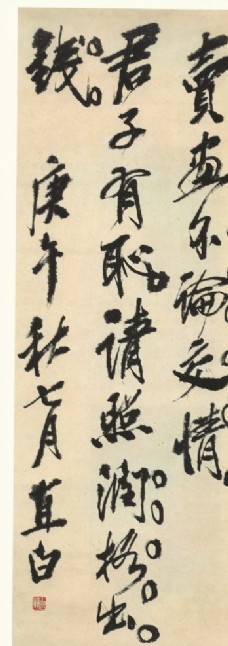 賣畫不論交情
君子有恥請照潤格出
錢
庚午秋七月直白